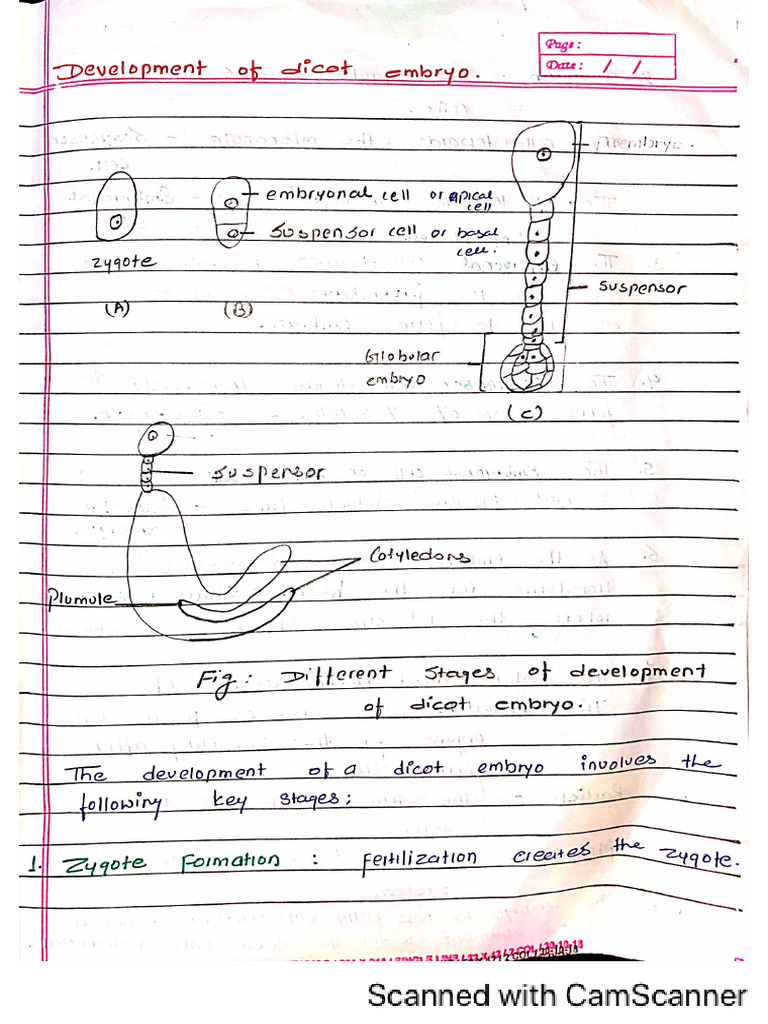 Page :
Date : / /
Development of dicot embryo.
embryonal cell or apical
cell
suspensor cell or basal
cell.
zygote
suspensor
(A)
(B)
Globular
embryo
(C)
suspensor
Cotyledons
Plumule
Fig: Different stages of development
of dicot embryo.
The development of a dicot embryo involves the
following key stages;
1. Zygote Formation : Fertilization creates the zygote.
Scanned with CamScanner